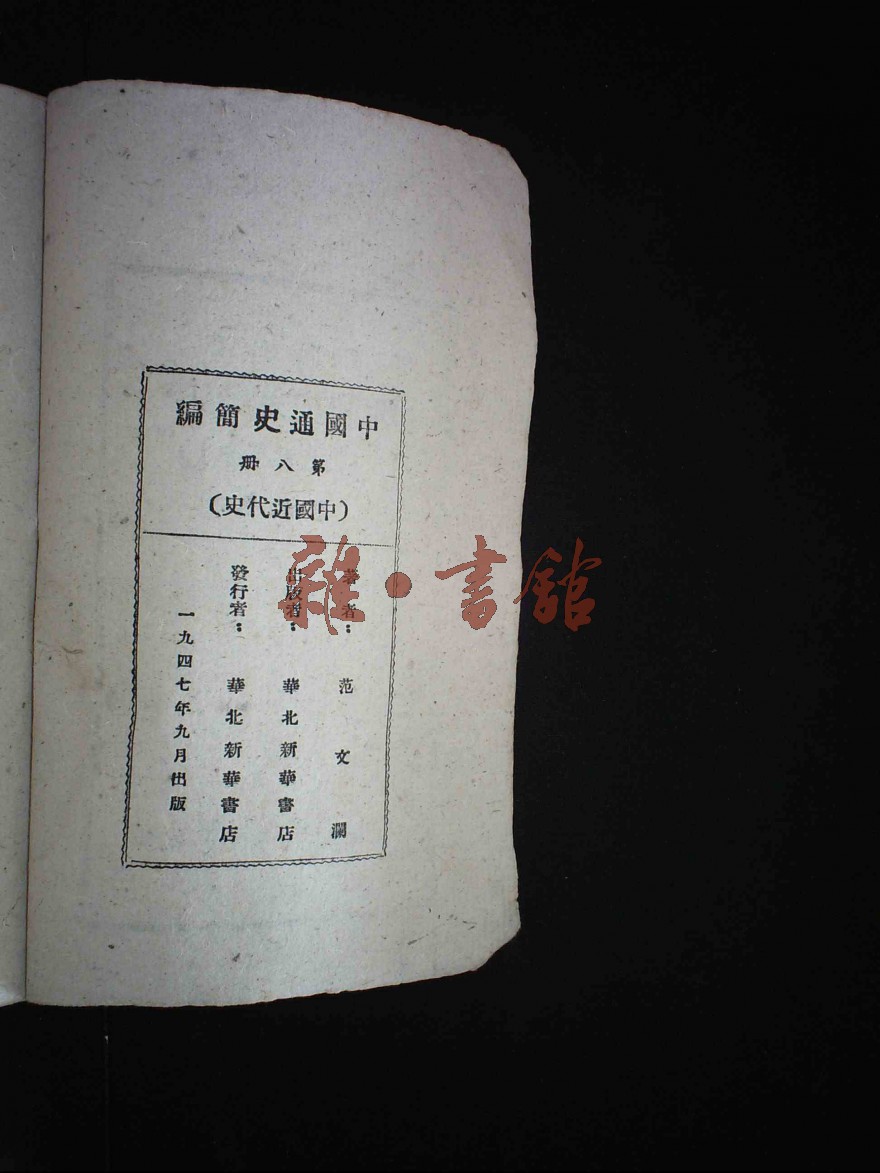 中國通史簡編
第八册
（中國近代史）
著者： 范文瀾
出版者： 華北新華書店
發行者： 華北新華書店
一九四七年九月出版
雜·書館